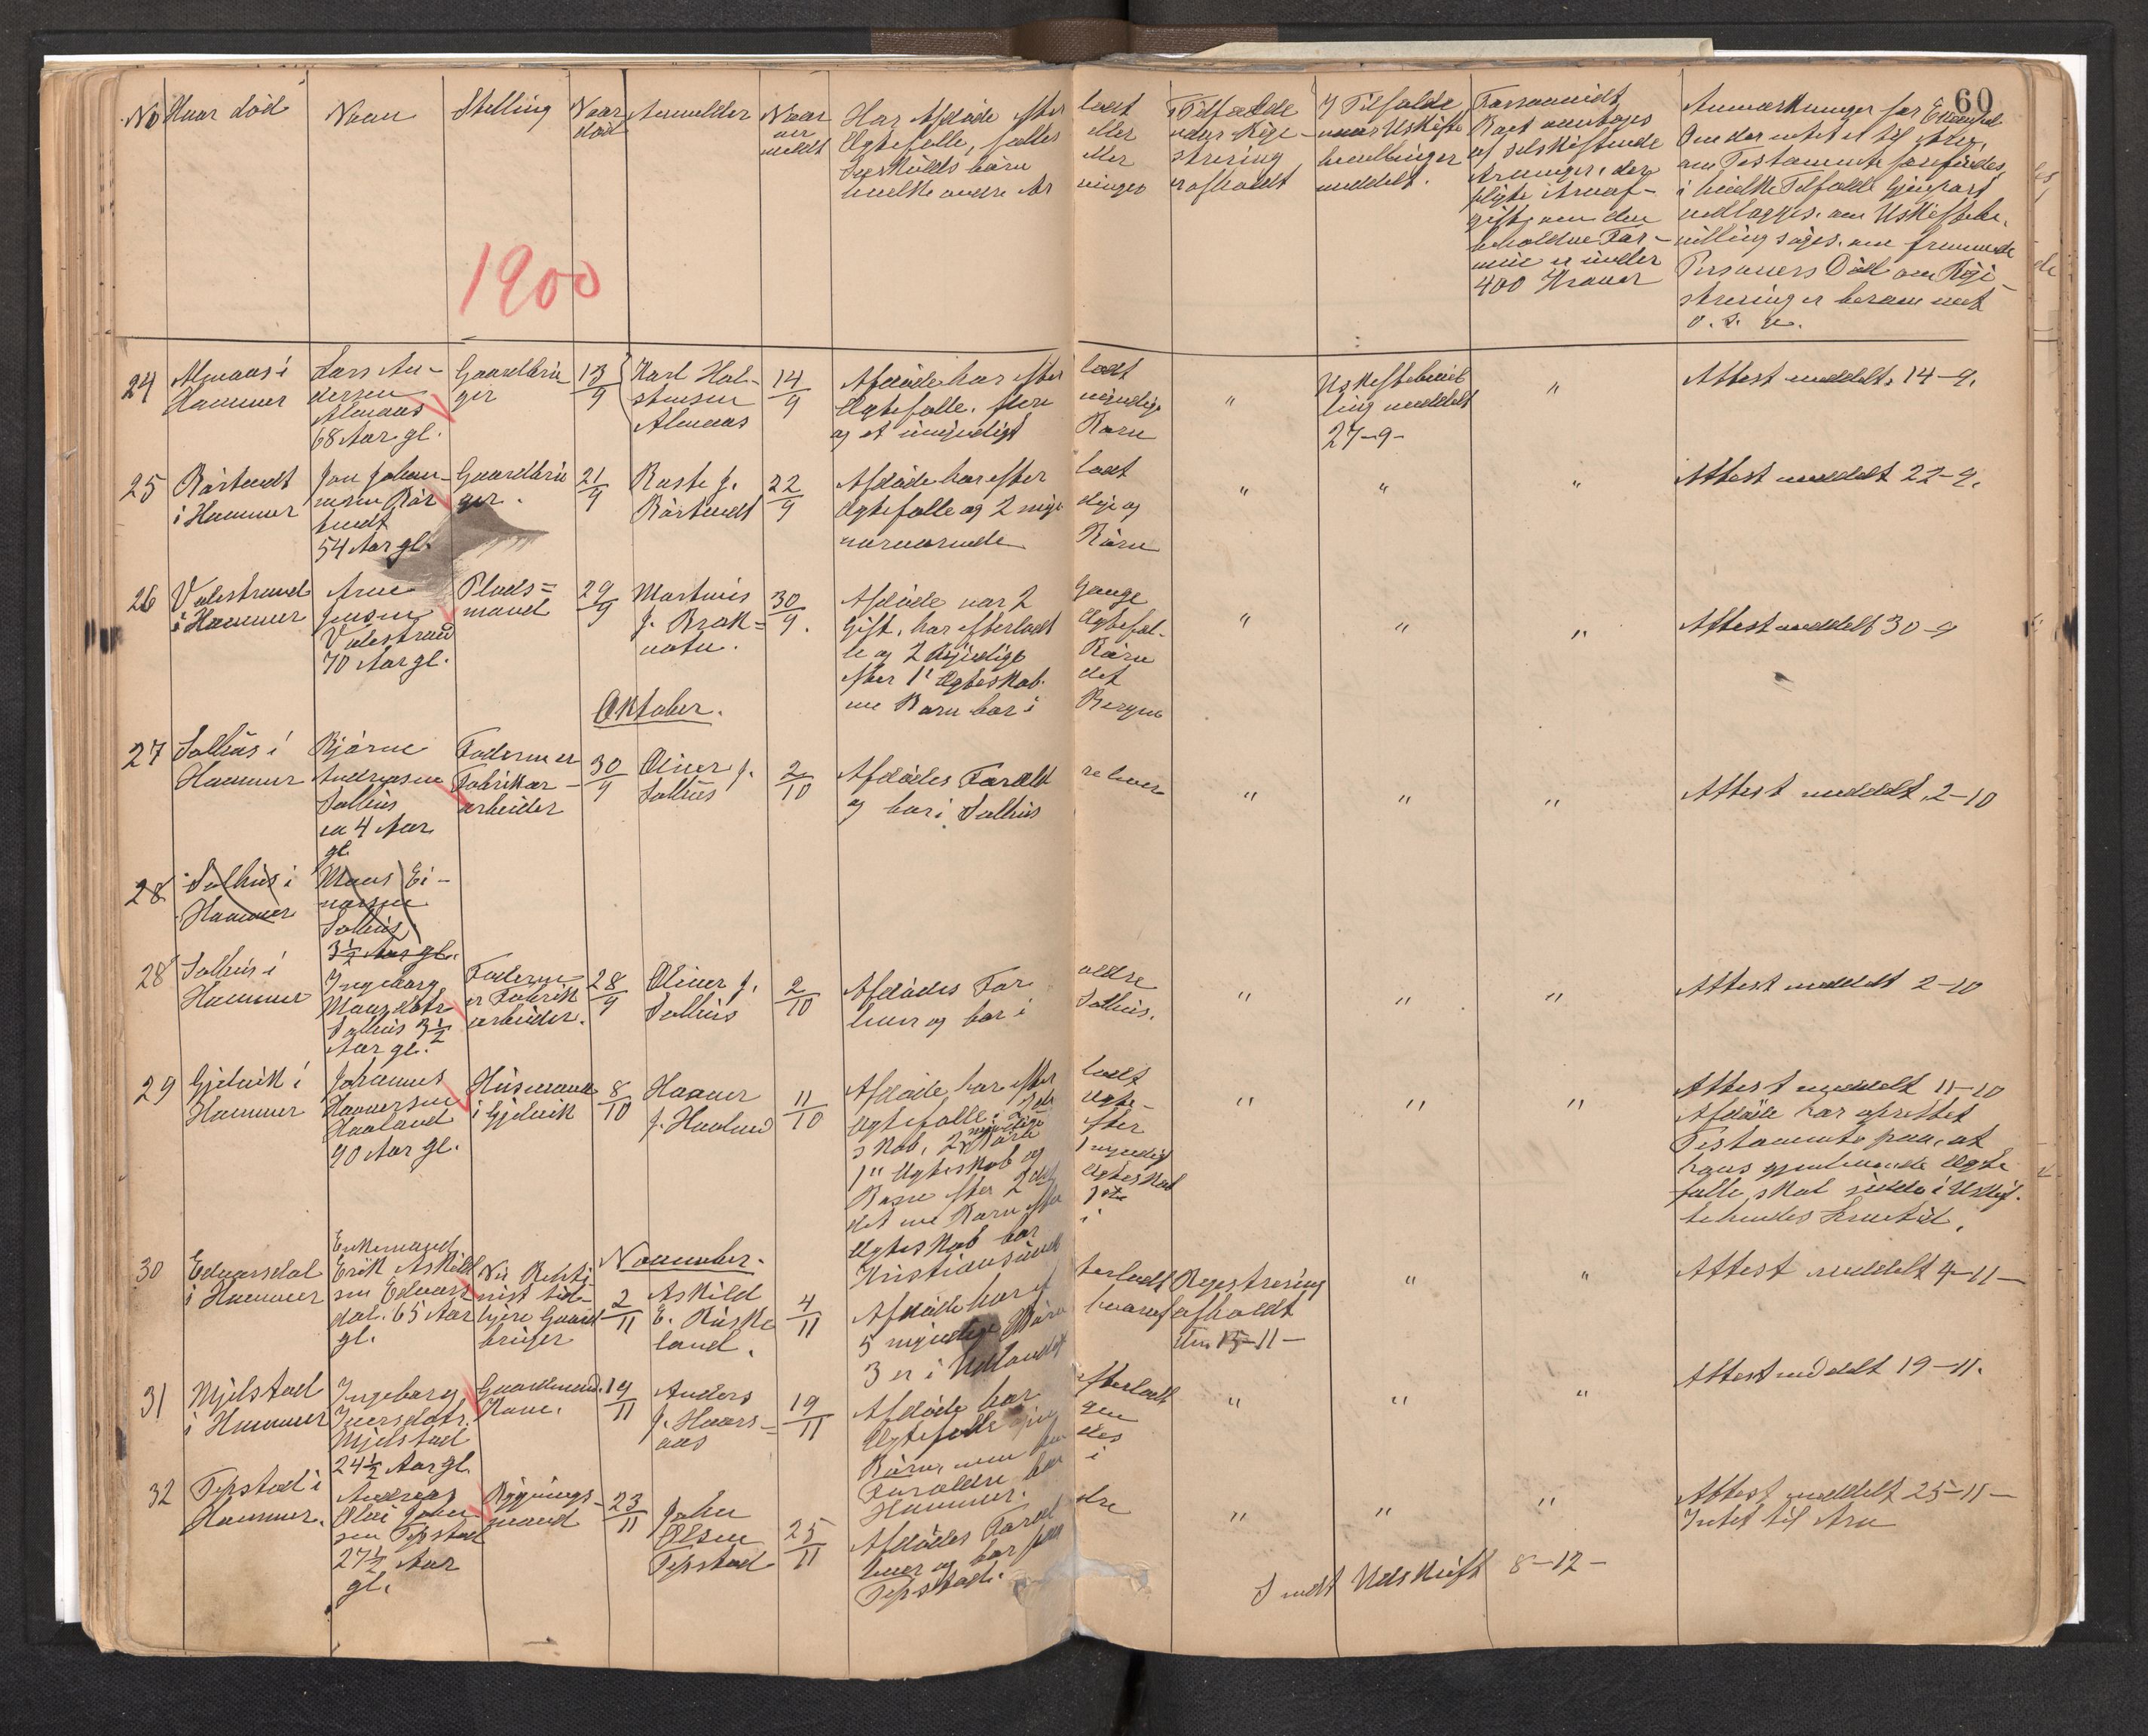 60
No
Hvor död
Navn
Stilling
Naar
död
Anmelder
Naar
an
meldt
Har Afdöde efter ladt
Ægtefælle, fælles eller
Særkulds börn eller
hvilke andre Arvinger
I Tilfælde
under Regi-
strering
er afholdt
I Tilfælde
naar Uskifte
bevillinger
meddelt.
Forsaavidt
Boet overtages
af selvskiftende
Arvinger, der
pligte Arveaf-
gift, om den
beholdne For-
mue er under
400 Kroner
Anmerkninger for Exempel
Om der intet er til Arv,
om Testamente forefindes,
i hvilke Tilfælde Gjenpart
vedlægges. om Uskiftebe-
villing söges. om fremmede
Personers Död om Regi-
strering er berammet
o. s. v.
1900
24
Almaas i
Hammer
Lars An-
dersen
Almaas
68 Aar gl.
Gaardbru
ger
13/9
Karl Hol-
stensen
Almaas
14/9
Afdöde har efter ladt
Ægtefælle, flere myndige
og et umyndigt Barn
"
Uskiftebevil
ling meddelt
27-9-
"
Attest meddelt. 14-9.
25
Börtveidt
i Hammer
Jon Johan-
nesen Bör
tveidt
54 Aar gl.
Gaardbru
ger.
21/9
Börtveidt
22/9
Afdöde har efter ladt
Ægtefælle og 2 myn dige og
nærværende Börn
"
"
"
Attest meddelt 22-9.
26
Valestrand
i Hammer
Arne
Jensen
Valestrand
70 Aar gl.
Plads=
mand
29/9
Martinus
J. Brak=
vatn.
30/9.
Afdöde var 2 Gange
Gift, har efterladt Ægtefæl-
le og 2 Myndige Börn
efter 1' Ægteskab. det
ene Barn bor i Bergen
"
"
"
Attest meddelt 30-9
Oktober.
27
Salhus i
Hammer
Bjarne
Andreasen
Salhus
ca 4 Aar
gl
Faderen er
Fabrikar-
arbeider
30/9
Oliver J.
Salhus
2/10
Afdödes Foræld re lever
og bor i Salhus
"
"
"
Attest meddelt. 2-10
28
Salhus i
Hammer
Maas Ei-
narsen
Salhus
3½ Aar gl.
28
Salhus i
Hammer
Ingeborg
Monsdatr
Salhus 3½
Aar gl.
Faderen
er Fabrik
arbeider.
28/9
Oliver J.
Salhus
2/10
Afdödes For ældre
lever og bor i Salhus.
"
"
"
Attest meddelt 2-10
29
Gjelvik i
Hammer
Johannes
Haaversen
Haaland
90 Aar gl.
Husmand
i Gjelvik
8/10
Haaver
J. Haaland
11/10
Afdöde har efter ladt
Ægtefælle i 2det Ægte-
skab, 2 myndige Börn efter
1'' Ægteskab og 1 myndig
Barn efter 2det Ægteskab
det ene Barn efter 1ste
Ægteskab bor i
Kristiansund
"
"
"
Attest meddelt 11-10
Afdöde har oprettet
Testamente paa, at
hans gjenlevende Ægte
fælle, skal sidde i Uskif-
te hendes Levetid.
November.
30
Eduarsdal
i Hammer
Enkemand
Erik Askild
sen Eduars
dal. 65 Aar
gl.
Nu
tid-
ligere Gaard
bruger
2/11
Askild
E. Röske
land.
4/11
Afdöde har ef terladt
5 myndige Börn hvoraf
3 er i Udlandet
Registrering
afholdt
den 15-11-
"
"
Attest meddelt 4-11-
31
Mjelstad
i Hammer
Ingeborg
Iversdatr.
Mjelstad
24½ Aar gl.
Gaardmand.
Kone.
19/11
Anders
J. Haars-
aas
19/11
Afdöde har efterladt
Ægtefælle ingen
Börn, men hen des
Foræeldre bor i
Hammer.
"
"
"
Attest meddelt 19-11.
32
Tepstad i
Hammer.
Andreas
Olai John
sen Tepstad
27½ Aar
gl.
Bygnings-
mand
23/11
John
Olsen
Tepstad
25/11
Afdödes Foræl dre
lever og bor paa
Tepstad.
"
"
"
Attest meddelt 25-11-
Intet til Arv
Sendt Udskrift 8-12-